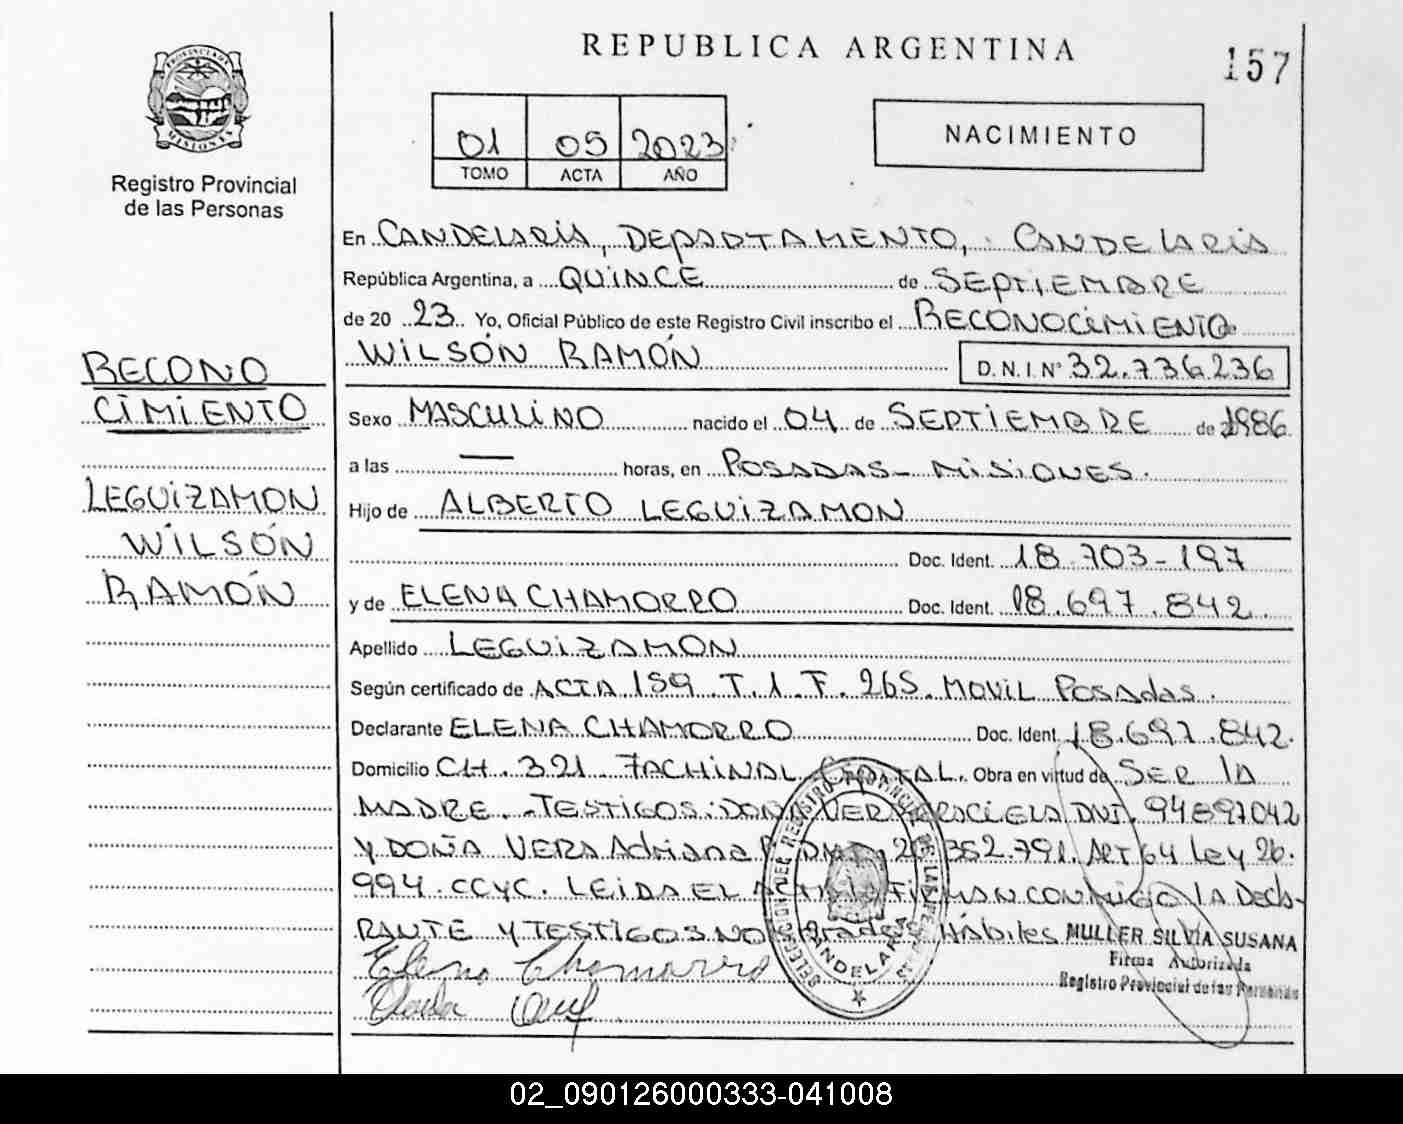 REPUBLICA ARGENTINA
157
PROVINCIA DE
MISIONES
Registro Provincial
de las Personas
01 05 2023
TOMO ACTA AÑO
NACIMIENTO
En CANDELARIA, DEPARTAMENTO, CANDELARIA
República Argentina, a QUINCE de SEPTIEMBRE
de 20 23 Yo, Oficial Público de este Registro Civil inscribo el RECONOCIMIENTO
WILSÓN RAMÓN D.N.I.N° 32.736.236
RECONO
CIMIENTO
LEGUIZAMON
WILSÓN
RAMÓN
Sexo MASCULINO nacido el 04 de SEPTIEMBRE de 1986
a las — horas, en POSADAS - MISIONES.
Hijo de ALBERTO LEGUIZAMON
Doc. Ident. 18.703-197
y de ELENA CHAMORRO Doc. Ident. 18.697.842.
Apellido LEGUIZAMON
Según certificado de ACTA 159 T. 1 F. 265. MOVIL Posadas.
Declarante ELENA CHAMORRO Doc. Ident 18.697.842.
Domicilio CH. 321 FACHINAL Obra en virtud de SER LA
MADRE. - TESTIGOS: VERA DNI. 94897042
Y DOÑA VERA Adriana 352.791. ART 64 Ley 26.
994. CCyC. LEIDA EL ACTA LA FIRMAN CONMIGO LA DECLA-
RANTE Y TESTIGOS NO Hábiles MULLER SILVIA SUSANA
Firma Autorizada
Registro Provincial de las Personas
Elena Chamorro
DELEGACION DEL REGISTRO PROVINCIAL DE LAS PERSONAS
CANDELARIA
02_090126000333-041008